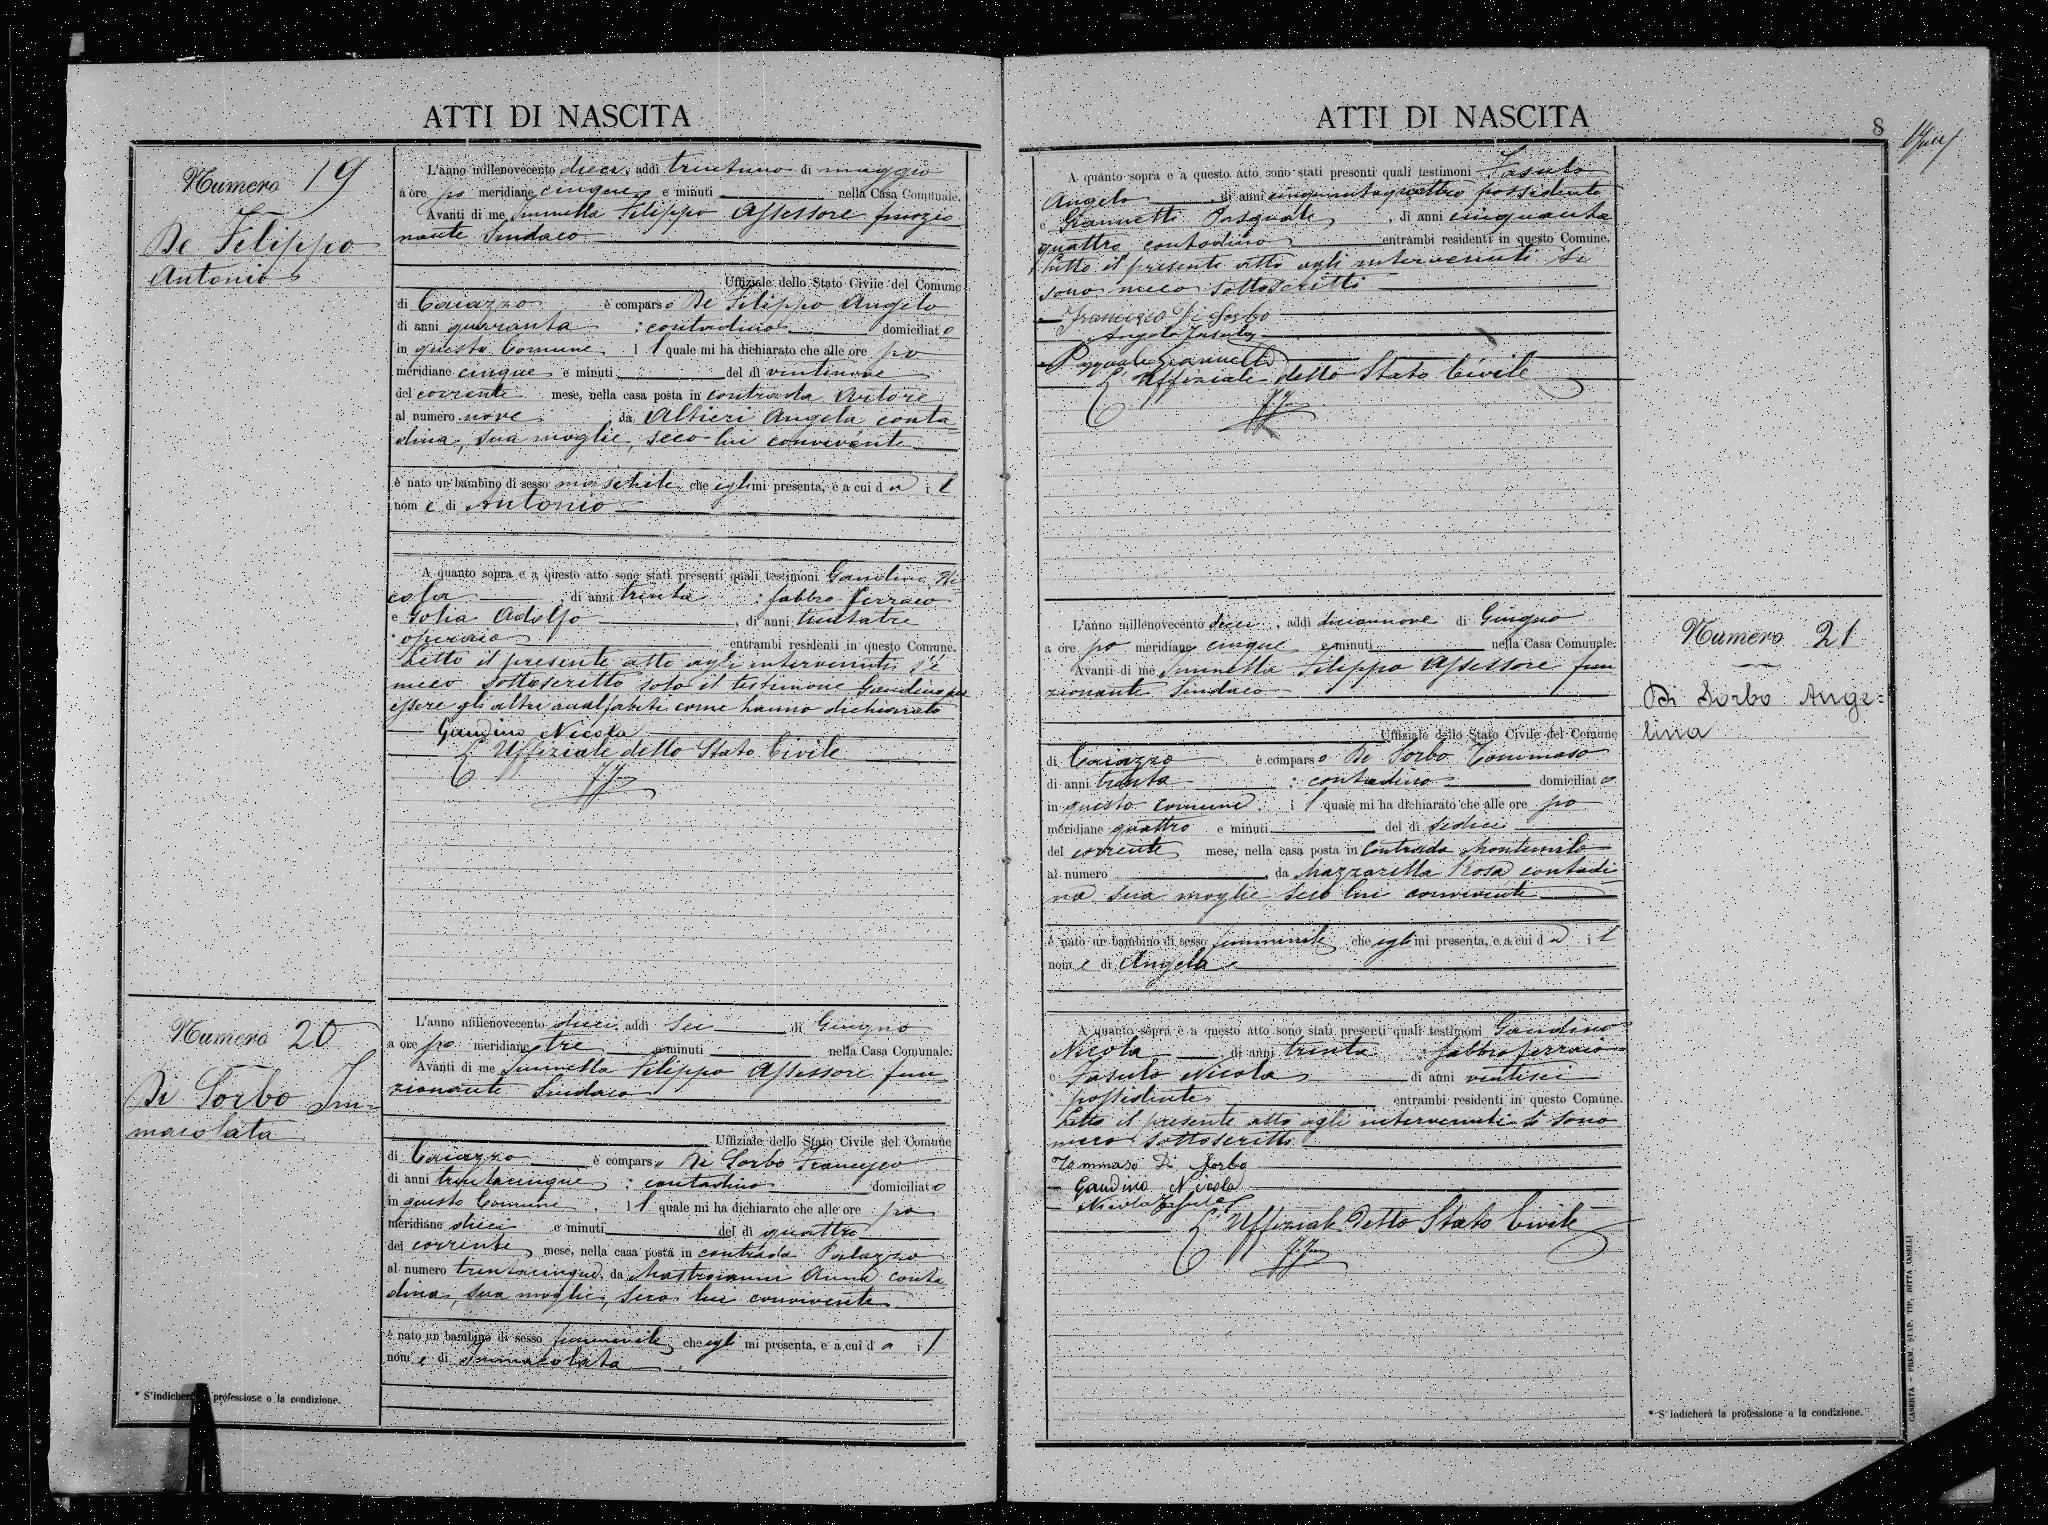 ATTI DI NASCITA
Numero 19
De Filippo
Antonio
L'anno millenovecento dieci, addì trentuno di maggio
a ore po meridiane cinque e minuti nella Casa Comunale.
Avanti di me Iannella Filippo Assessore funzio
nante Sindaco
Uffiziale dello Stato Civile del Comune
di Caiazzo è comparso De Filippo Angelo
di anni quaranta : contadino domiciliato
in questo Comune il quale mi ha dichiarato che alle ore po
meridiane cinque e minuti del dì ventinove
del corrente mese, nella casa posta in contrada
al numero nove da Altieri Angela conta
dina, sua moglie, seco lui convivente
è nato un bambino di sesso maschile che egli mi presenta, e a cui dà il
nome di Antonio
A quanto sopra e a questo atto sono stati presenti quali testimoni Gaudino Ni
cola , di anni trenta : fabbro ferraio
e Golia Adolfo , di anni trentatre
* operaio entrambi residenti in questo Comune.
Letto il presente atto agli intervenuti s'è
meco sottoscritto solo il testimone Gaudino per
essere gli altri analfabeti come hanno dichiarato
Gaudino Nicola
L'Uffiziale dello Stato Civile
Numero 20
Di Sorbo Im-
macolata
L'anno millenovecento dieci, addì sei di Giugno
a ore po meridiane tre e minuti nella Casa Comunale.
Avanti di me Iannella Filippo Assessore fun
zionante Sindaco
Uffiziale dello Stato Civile del Comune
di Caiazzo è comparso Di Sorbo Francesco
di anni trentacinque : contadino domiciliato
in questo Comune , il quale mi ha dichiarato che alle ore po
meridiane dieci e minuti del dì quattro
del corrente mese, nella casa posta in contrada Palazzo
al numero trentacinque, da Mastroianni Anna conta
dina, sua moglie, seco lui convivente
è nato un bambino di sesso femminile che egli mi presenta, e a cui dà il
nome di Immacolata
* S'indicherà professione o la condizione.
ATTI DI NASCITA
8
A quanto sopra e a questo atto sono stati presenti quali testimoni Fasulo
Angelo , di anni cinquantaquattro possidente
e Giannetti Pasquale , di anni cinquanta
quattro contadino entrambi residenti in questo Comune.
Letto il presente atto agli intervenuti si
sono meco sottoscritti
Francesco Di Sorbo
Angelo Fasulo
Pasquale Giannetti
L'Uffiziale dello Stato Civile
Numero 21
Di Sorbo Ange=
lina
L'anno millenovecento dieci, addì diciannove di Giugno
a ore po meridiane cinque e minuti nella Casa Comunale.
Avanti di me Iannella Filippo Assessore fun
zionante Sindaco
Uffiziale dello Stato Civile del Comune
di Caiazzo è comparso Di Sorbo Tommaso
di anni trenta : contadino domiciliato
in questo Comune il quale mi ha dichiarato che alle ore po
meridiane quattro e minuti del dì sedici
del corrente mese, nella casa posta in Contrada Montemilo
al numero , da Mazzarella Rosa contadi
na sua moglie seco lui convivente
è nato un bambino di sesso femminile che egli mi presenta, e a cui dà il
nome di Angela
A quanto sopra e a questo atto sono stati presenti quali testimoni Gaudino
Nicola di anni trenta : fabbro ferraio
e Fasulo Nicola di anni ventisei
* possidente entrambi residenti in questo Comune.
Letto il presente atto agli intervenuti si sono
meco sottoscritti
Tommaso Di Sorbo
Gaudino Nicola
Nicola Fasulo
L'Uffiziale dello Stato Civile
* S'indicherà la professione o la condizione.
CASERTA - PREM. STAB. TIP. DITTA JASELLI